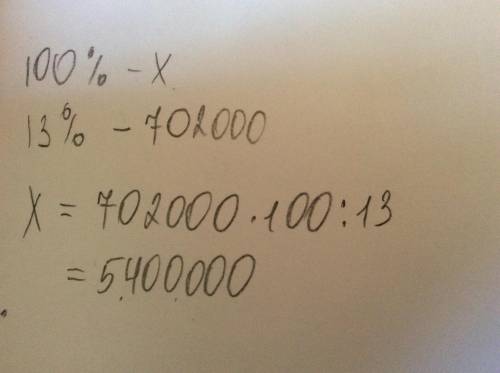 100% - X
13% - 702000
X = 702000 · 100 : 13
= 5.400.000